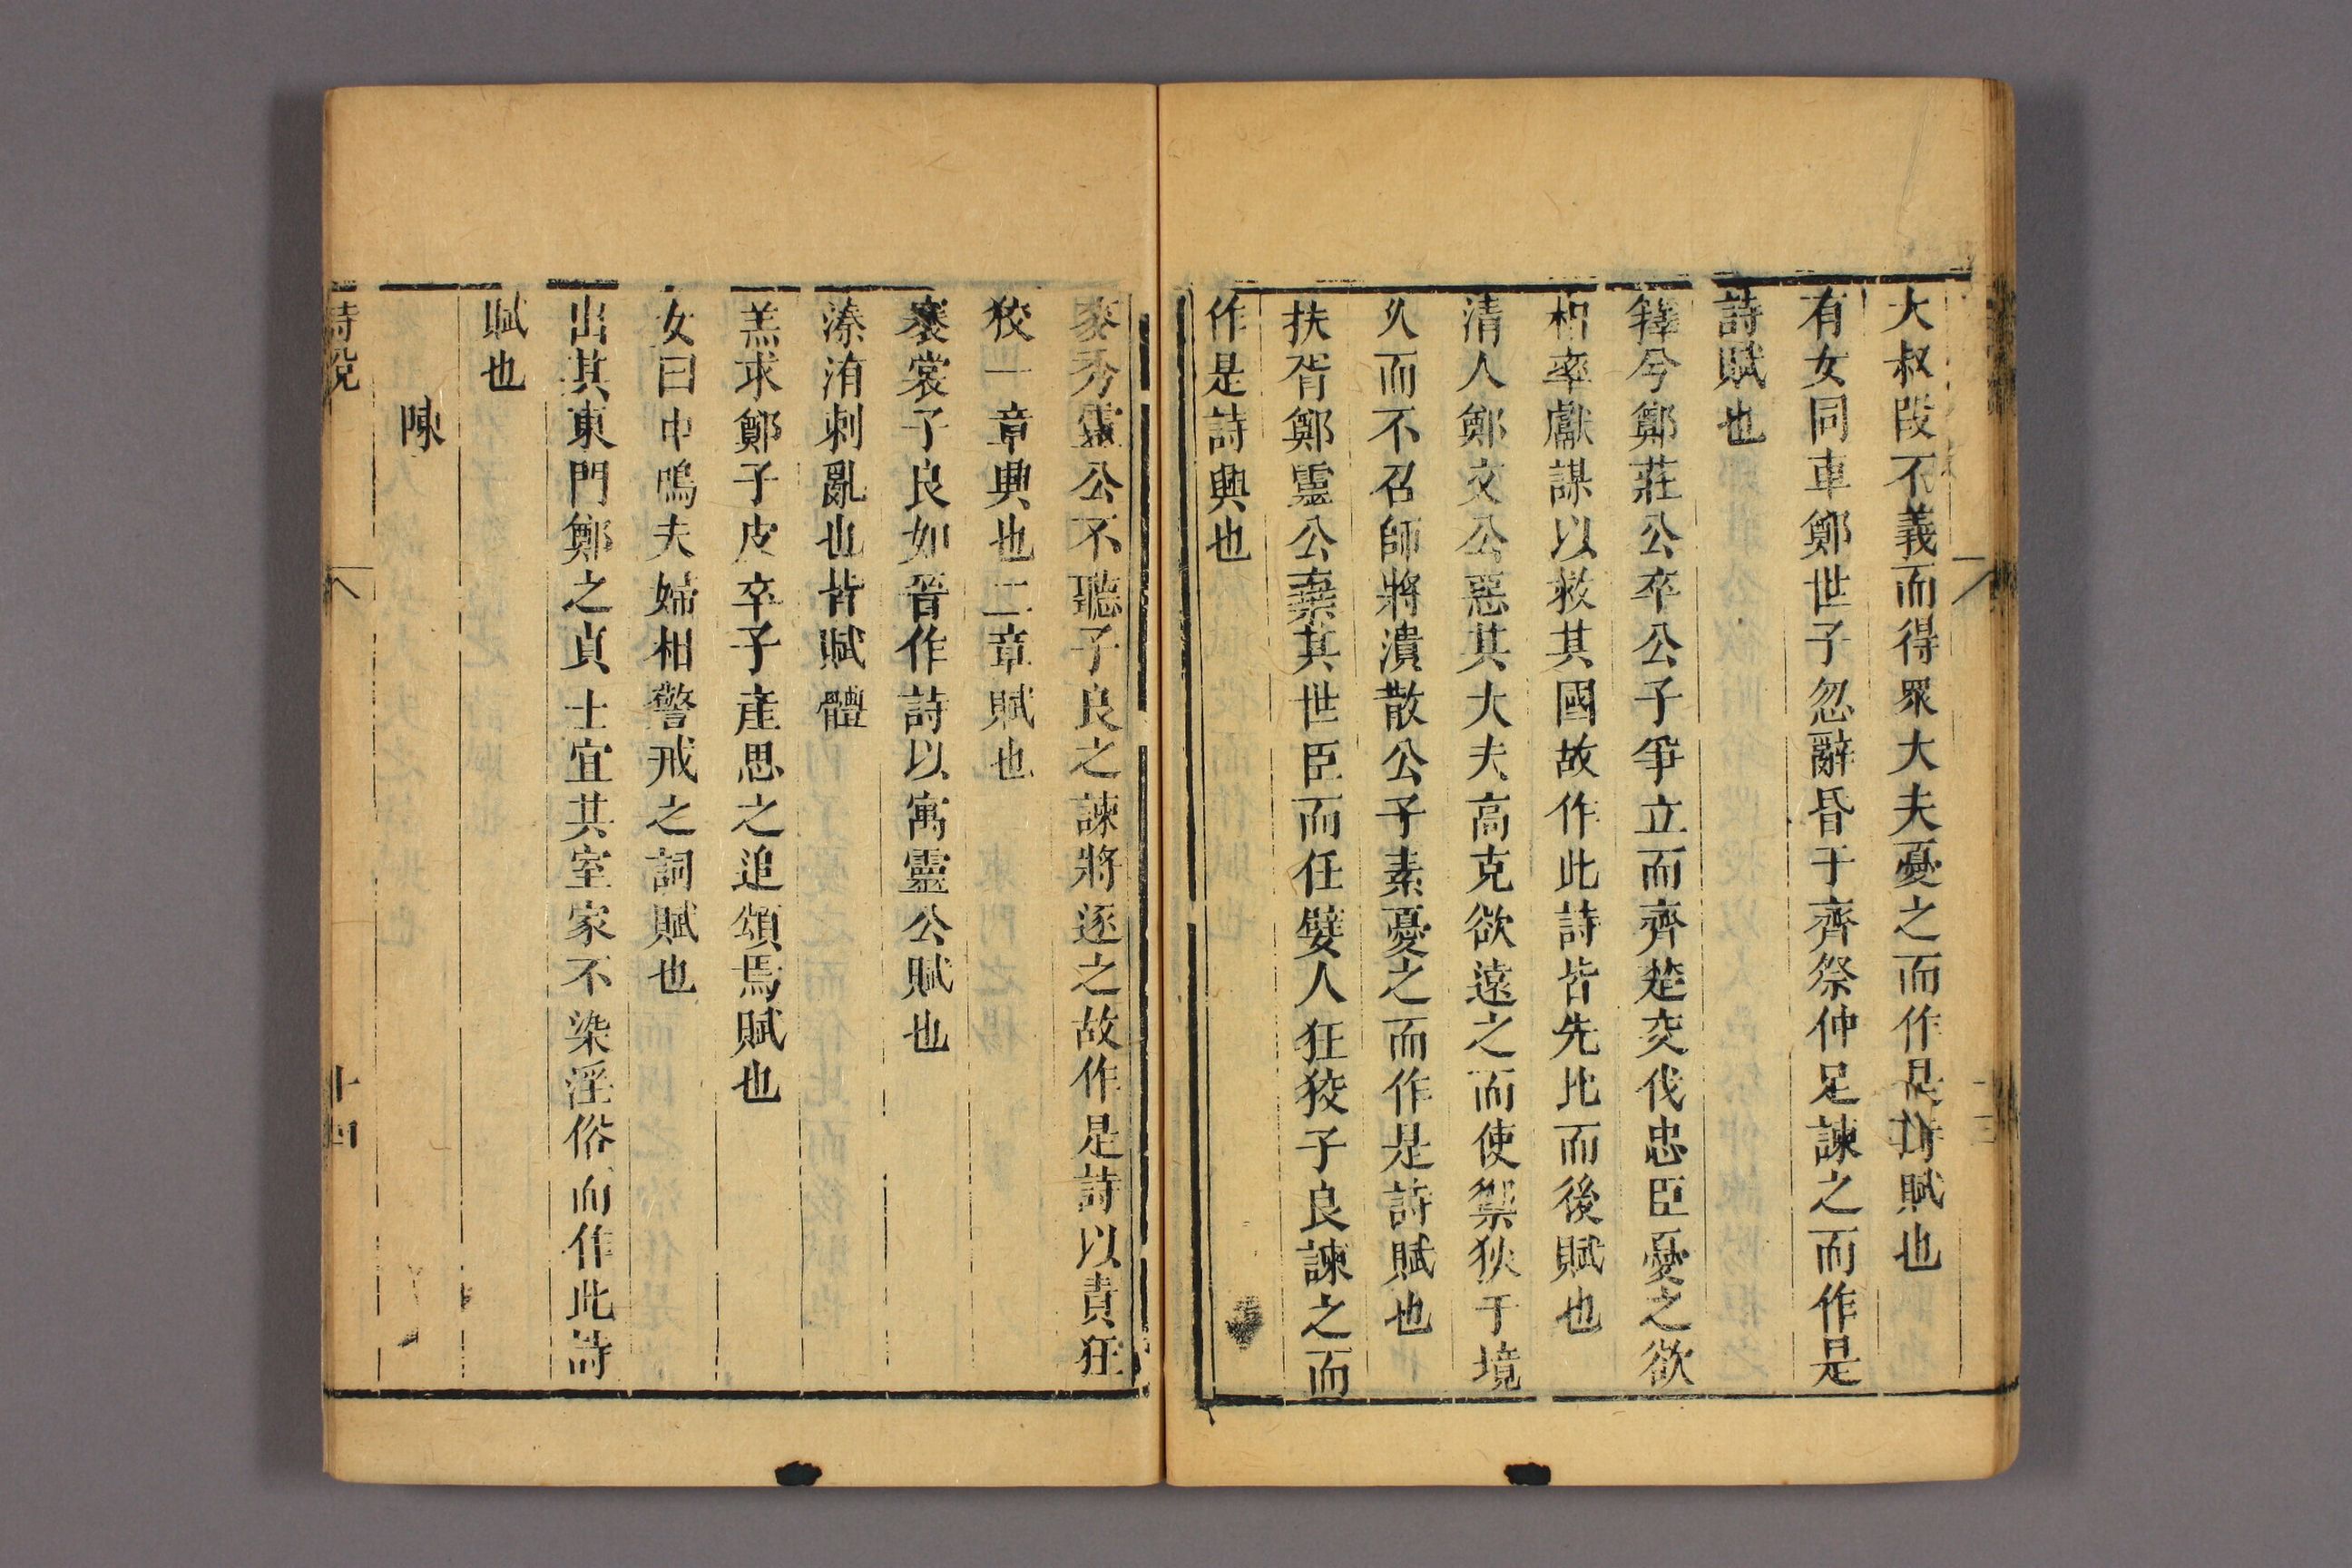 大叔段不義而得眾大夫憂之而作是詩賦也
有女同車鄭世子忽辭昏于齊祭仲足諫之而作是
詩賦也
蘀兮鄭莊公卒公子爭立而齊楚交伐忠臣憂之欲
相率獻謀以救其國故作此詩皆先比而後賦也
清人鄭文公惡其大夫高克欲遠之而使禦狄于境
久而不召師將潰散公子素憂之而作是詩賦也
扶胥鄭靈公棄其世臣而任嬖人狂狡子良諫之而
作是詩興也
麥秀靈公不聽子良之諫將逐之故作是詩以責狂
狡一章興也二章賦也
褰裳子良如晉作詩以寓靈公賦也
溱洧刺亂也皆賦體
羔求鄭子皮卒子產思之追頌焉賦也
女曰中嗚夫婦相警戒之詞賦也
出其東門鄭之貞士宜其室家不染淫俗而作此詩
賦也
陳
詩說
十四